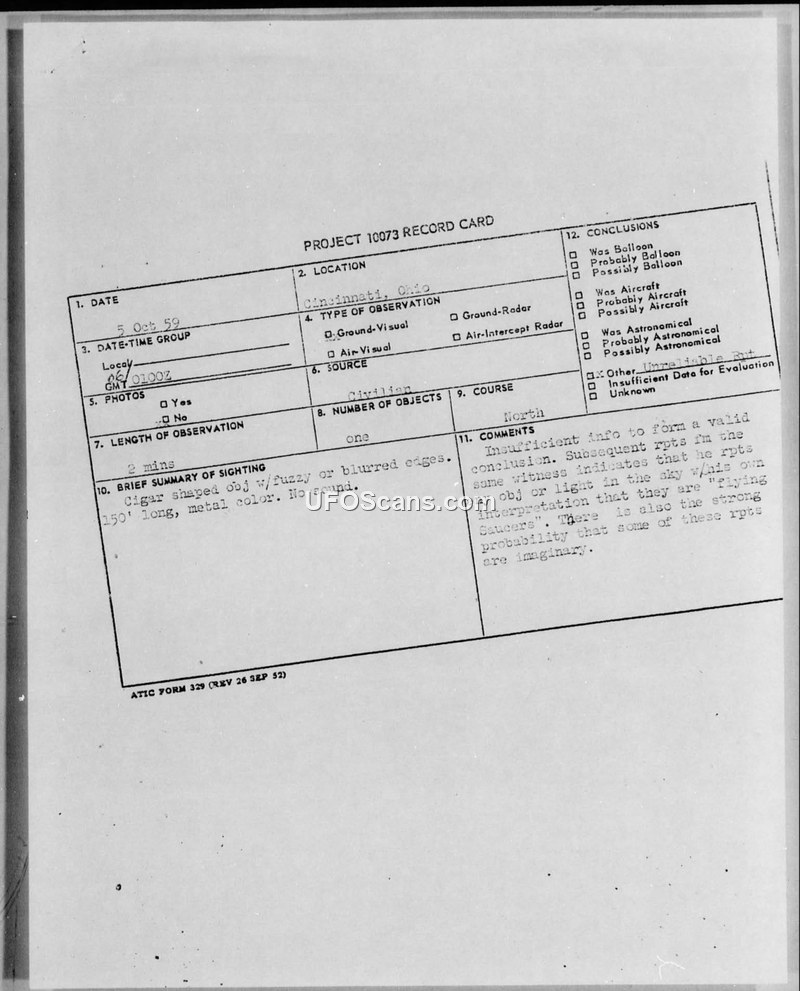 PROJECT 10073 RECORD CARD
1. DATE
5 Oct 59
2. LOCATION
Cincinnati, Ohio
12. CONCLUSIONS
□ Was Balloon
□ Probably Balloon
□ Possibly Balloon
□ Was Aircraft
□ Probably Aircraft
□ Possibly Aircraft
□ Was Astronomical
□ Probably Astronomical
□ Possibly Astronomical
□x Other Unreliable Rpt
□ Insufficient Data for Evaluation
□ Unknown
3. DATE-TIME GROUP
Local
GMT 06/0100Z
4. TYPE OF OBSERVATION
□ Ground-Visual
□ Ground-Radar
□ Air-Visual
□ Air-Intercept Radar
5. PHOTOS
□ Yes
□ No
6. SOURCE
Civilian
7. LENGTH OF OBSERVATION
2 mins
8. NUMBER OF OBJECTS
one
9. COURSE
North
10. BRIEF SUMMARY OF SIGHTING
Cigar shaped obj w/fuzzy or blurred edges.
150' long, metal color. No sound.
11. COMMENTS
Insufficient info to form a valid
conclusion. Subsequent rpts fm the
same witness indicates that he rpts
obj or light in the sky w/his own
interpretation that they are "flying
Saucers". There is also the strong
probability that some of these rpts
are imaginary.
ATIC FORM 329 (REV 26 SEP 52)
UFOScans.com